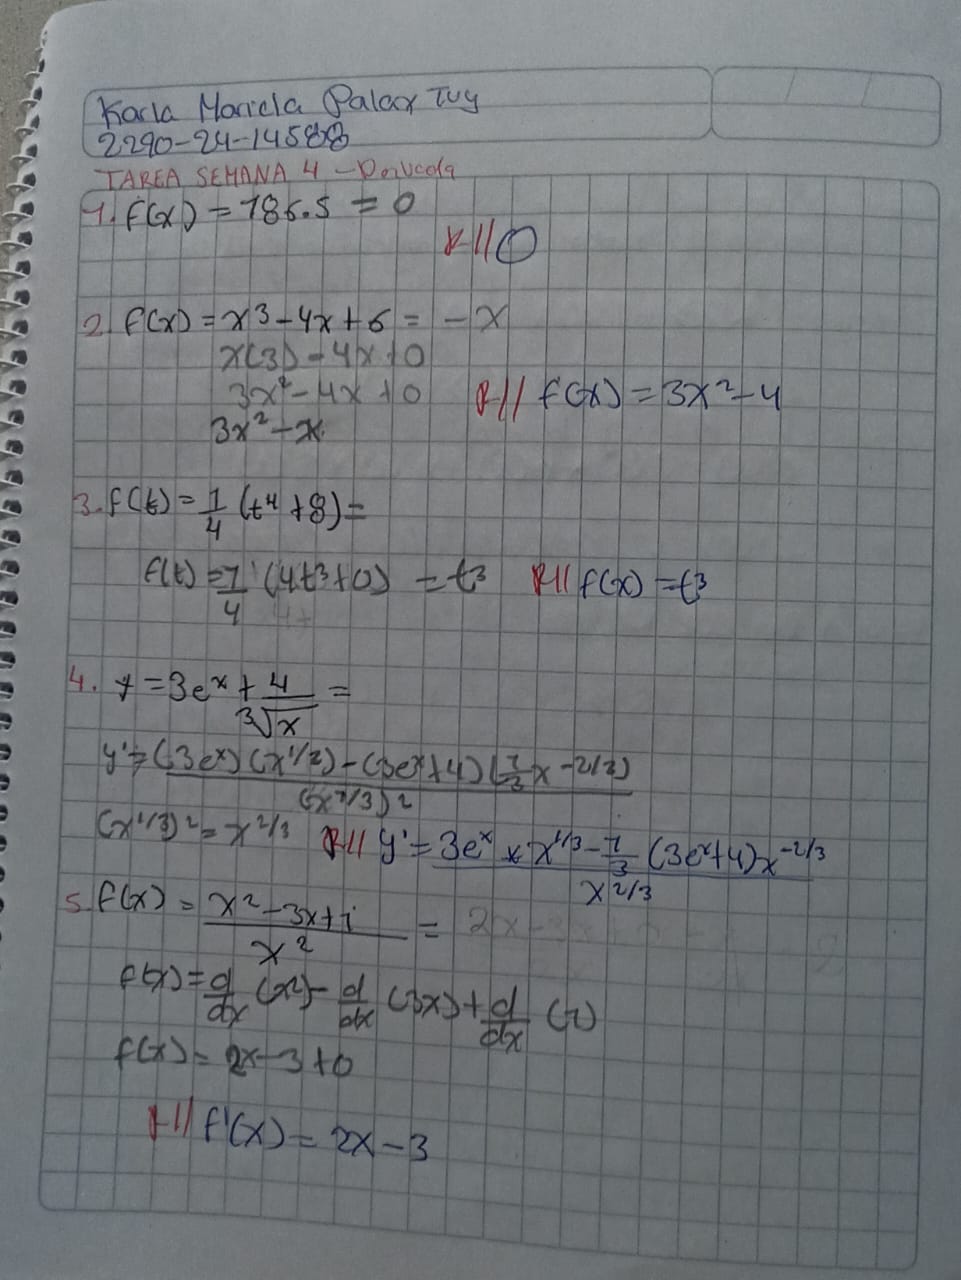 Karla Mariela Palax Tuy
2290-24-14588
TAREA SEMANA 4 -
1. f(x) = 786.5 = 0
R// 0
2. f(x) = x3 - 4x + 6 = - x
x(3) - 4x + 0
3x² - 4x + 0 R// f(x) = 3x² - 4
3x² - x
3. f(t) = 1/4 (t⁴ + 8) =
f(t) = 1/4 (4t3 + 0) = t3 R// f(x) = t3
4. y = 3eˣ + 4/³√x =
y' = (3eˣ)(x^1/3) - (3eˣ + 4)(1/3 x - 2/3) / (x^1/3)²
(x^1/3)² = x^2/3 R// y' = 3eˣ * x^1/3 - 1/3 (3eˣ + 4)x^-2/3 / x^2/3
5. f(x) = x² - 3x + 1 / x² = 2x
f(x) = d/dx (x²) - d/dx (3x) + d/dx (1)
f(x) = 2x - 3 + 0
R// f'(x) = 2x - 3